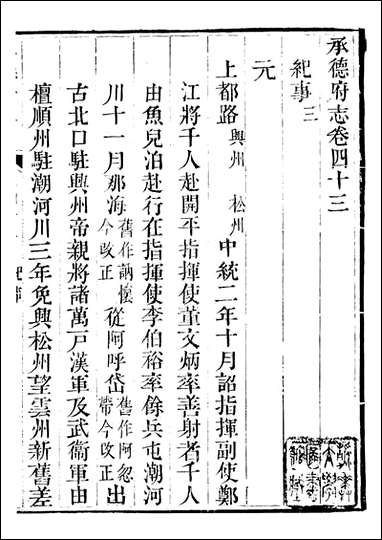 承德府志卷四十三
紀事三
元
上都路興州松州中統二年十月詔指揮副使鄭
江將千人赴開平指揮使董文炳率善射者千人
由魚兒泊赴行在指揮使李伯祐率餘兵屯潮河
川十一月那海舊作訥懷今改正從阿呼岱舊作阿忽帶今改正出
古北口駐興州帝親將諸萬戶漢軍及武衞軍由
檀順州駐潮河川三年免興松州望雲州新舊差